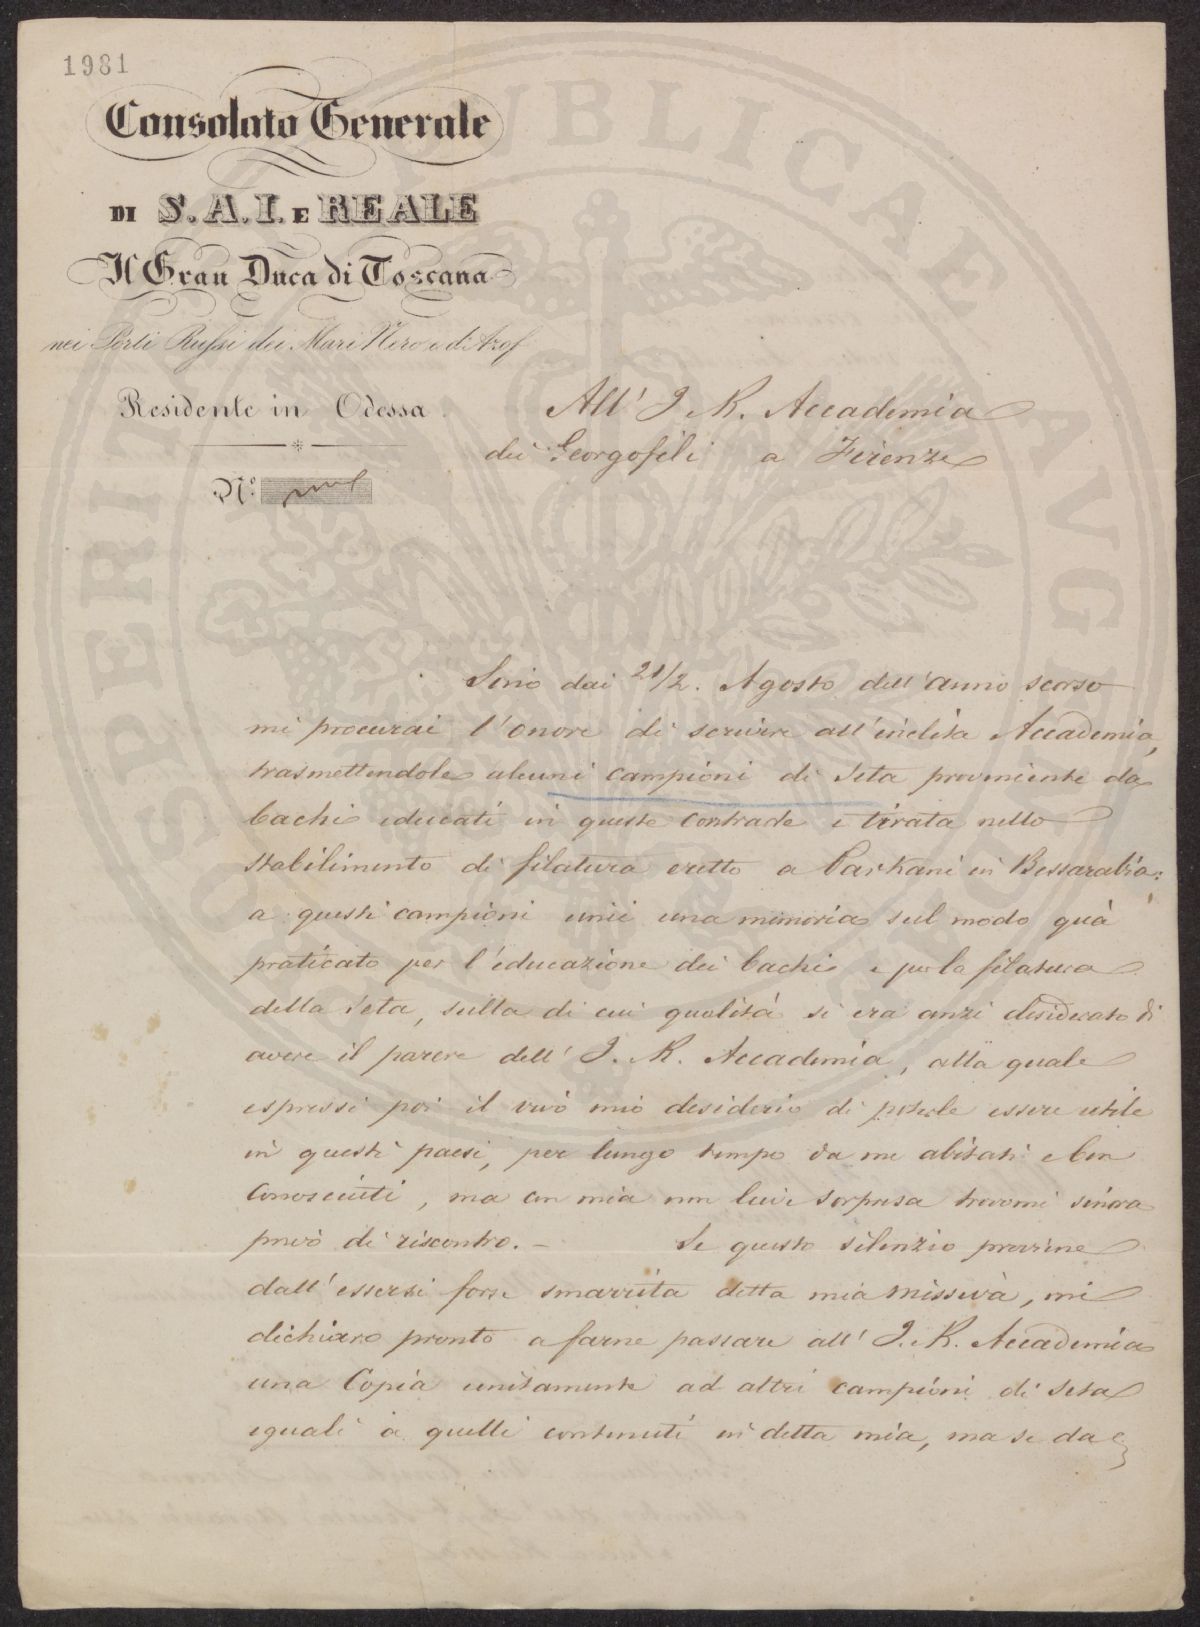 1981
Consolato Generale
DI S. A. I. E REALE
Il Gran Duca di Toscana
nei Porti Russi dei Mari Nero e d'Azof
Residente in Odessa
All' I. R. Accademia
dei Georgofili a Firenze
N.º
Sino dai 21/2. Agosto dell'anno scorso
mi procurai l'onore di scrivere all'inclita Accademia,
trasmettendole alcuni campioni di Seta proveniente da
bachi educati in queste contrade e tirata nello
stabilimento di filatura eretto a Parkani in Bessarabia:
a questi campioni unii una memoria sul modo quà
praticato per l'educazione dei bachi e per la filatura
della Seta, sulla di cui qualità si era anzi desiderato di
avere il parere dell' I. R. Accademia, alla quale
espressi poi il vivo mio desiderio di poterle essere utile
in questi paesi, per lungo tempo da me abitati e ben
Conosciuti, ma con mia non lieve sorpresa trovomi sinora
privo di riscontro. – Se questo silenzio proviene
dall'essersi forse smarrita detta mia missiva, mi
dichiaro pronto a farne passare all' I. R. Accademia
una Copia unitamente ad altri campioni di Seta
eguali a quelli contenuti in detta mia, ma se da
PUBLICAE
PROSPERITATI AVGENDAE